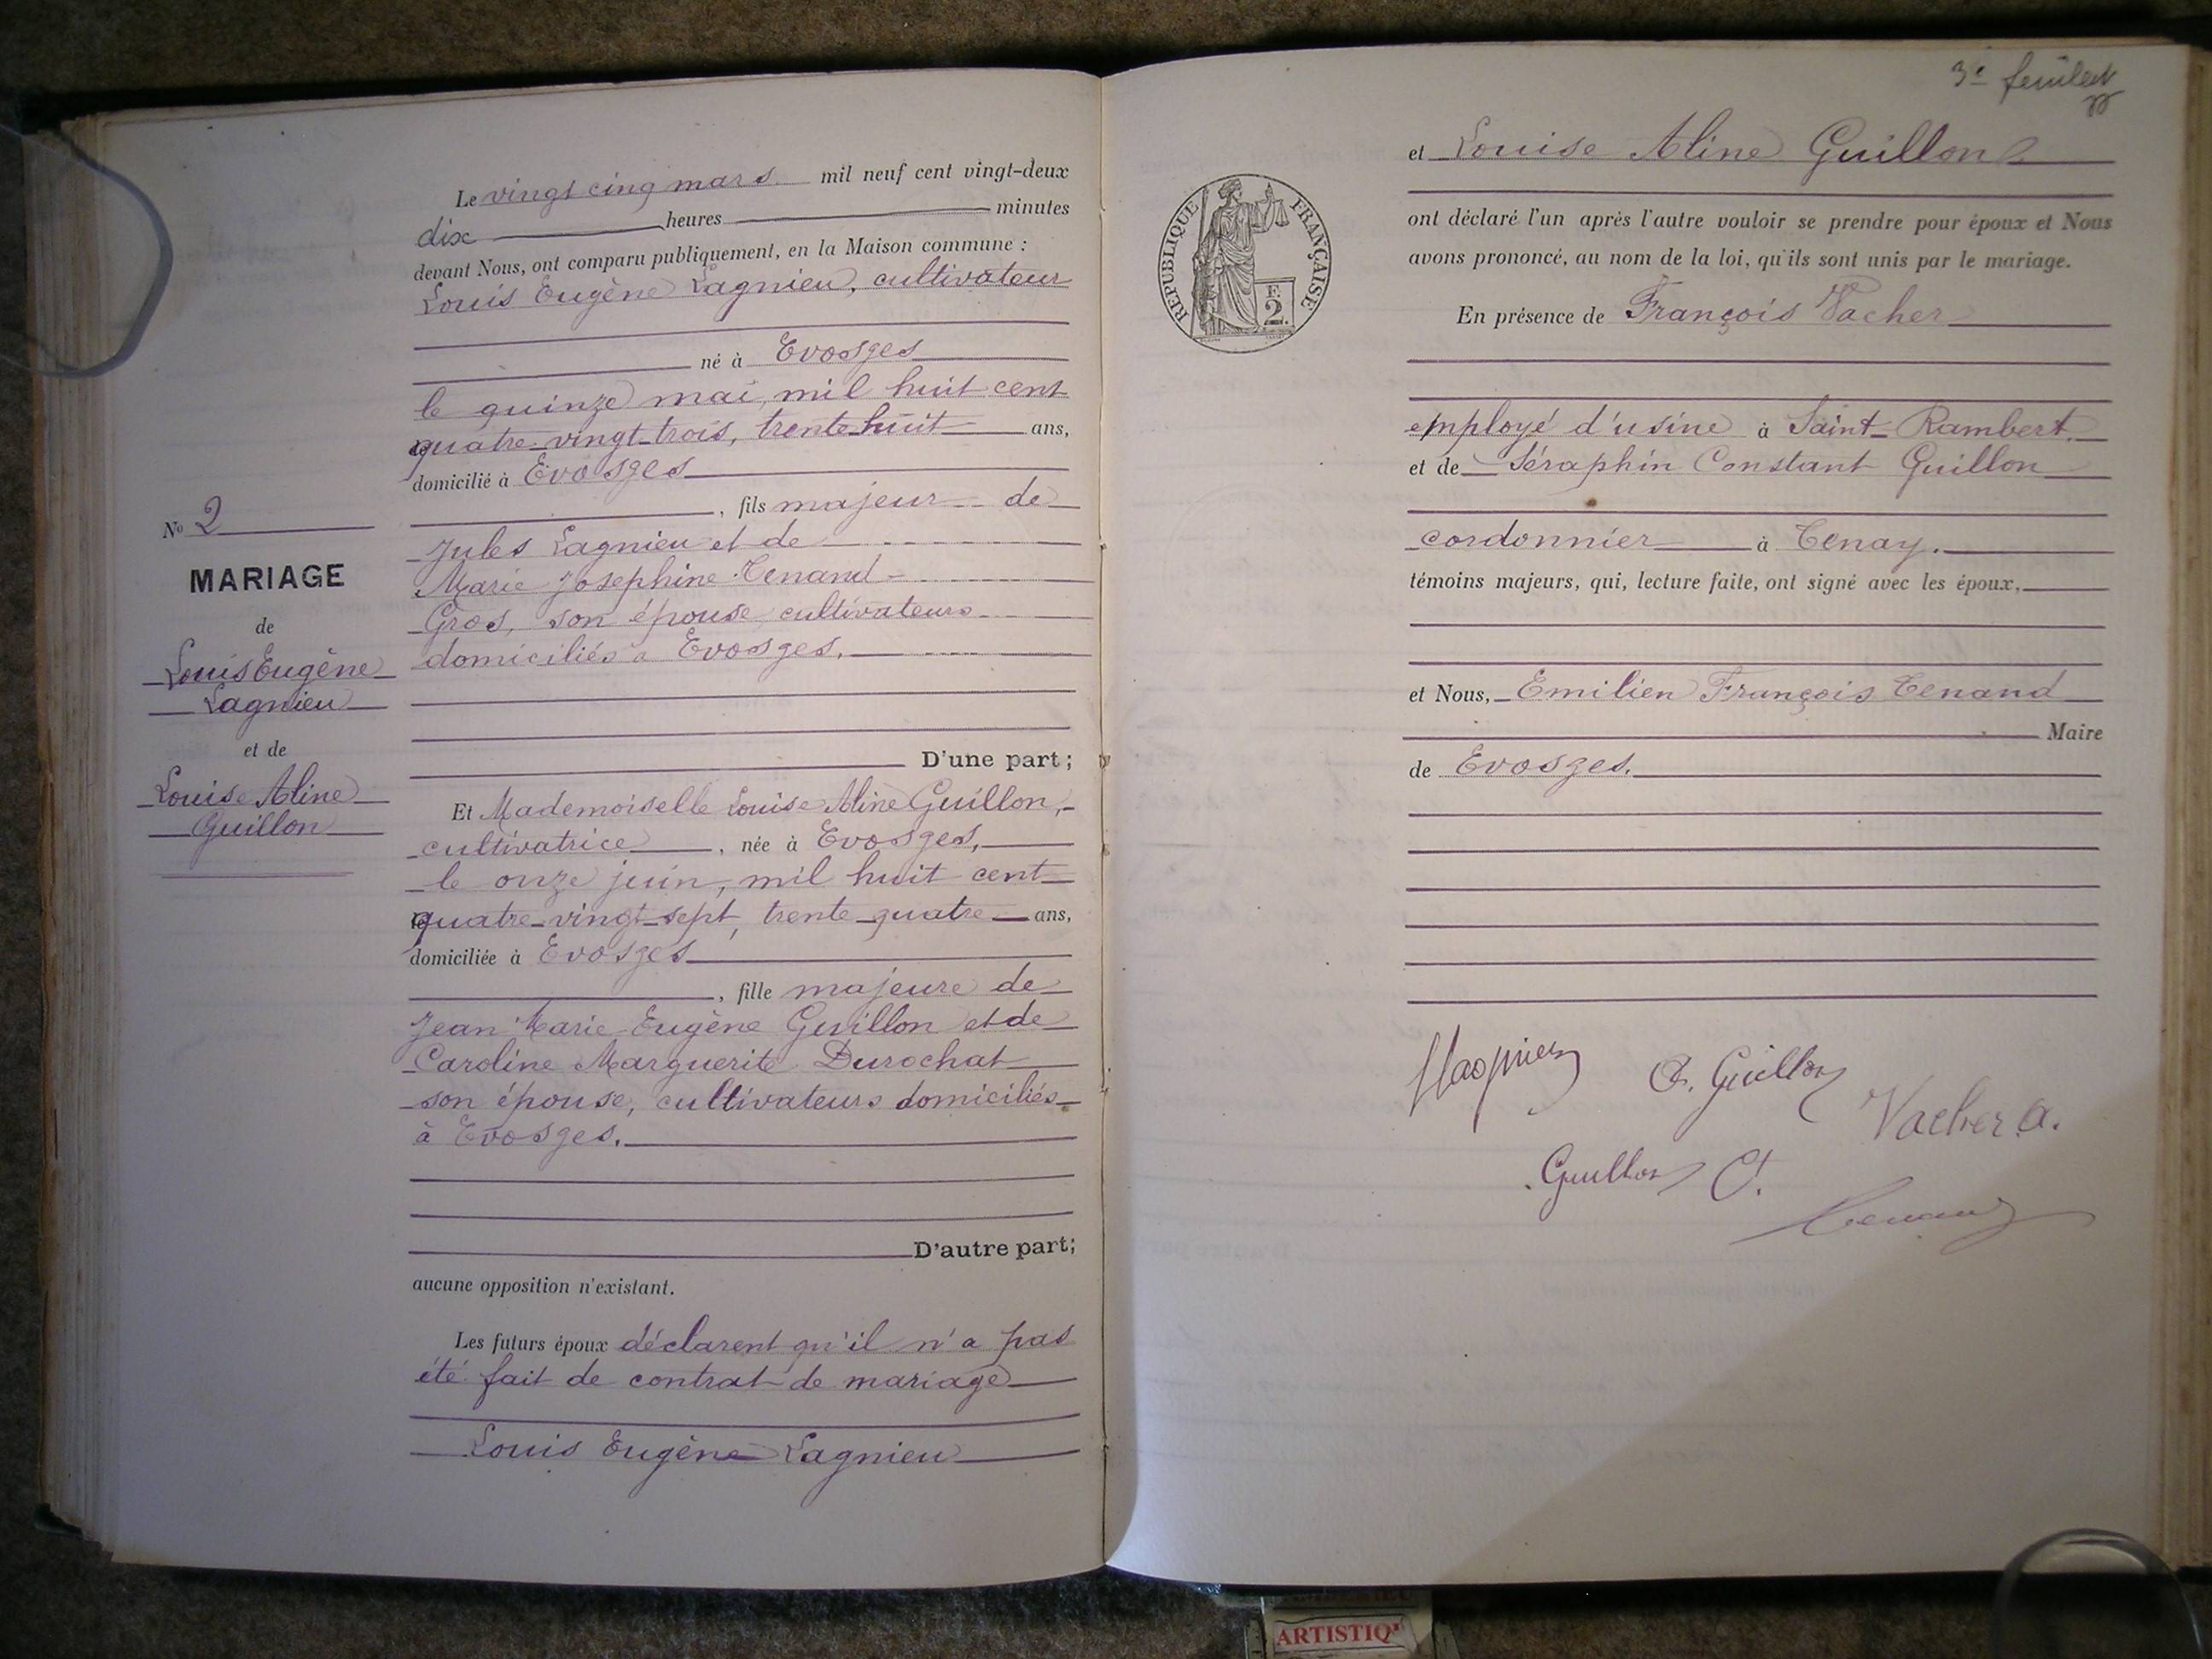 Le vingt cinq mars mil neuf cent vingt-deux
dix heures minutes
devant Nous, ont comparu publiquement, en la Maison commune :
Louis Eugène Lagnieu, cultivateur
né à Evosges
le quinze mai, mil huit cent
quatre-vingt-trois, trente-huit ans,
domicilié à Evosges
, fils majeur de
Jules Lagnieu et de
Marie Josephine Tenand-
Gros, son épouse, cultivateurs
domiciliés à Evosges.
D'une part ;
No 2
MARIAGE
de
Louis Eugène
Lagnieu
et de
Louise Aline
Guillon
Et Mademoiselle Louise Aline Guillon,
cultivatrice , née à Evosges,
le onze juin, mil huit cent
quatre-vingt-sept, trente-quatre ans,
domiciliée à Evosges
, fille majeure de
Jean Marie Eugène Guillon et de
Caroline Marguerite Durochat
son épouse, cultivateurs domiciliés
à Evosges.
D'autre part;
aucune opposition n'existant.
Les futurs époux déclarent qu'il n'a pas
été fait de contrat de mariage
Louis Eugène Lagnieu
3e feuillet
et Louise Aline Guillon
RÉPUBLIQUE FRANÇAISE
2 F.
ont déclaré l'un après l'autre vouloir se prendre pour époux et Nous
avons prononcé, au nom de la loi, qu'ils sont unis par le mariage.
En présence de François Vacher
employé d'usine à Saint-Rambert.
et de Séraphin Constant Guillon
cordonnier à Tenay.
témoins majeurs, qui, lecture faite, ont signé avec les époux,
et Nous, Emilien François Tenand
Maire
de Evosges.
Lagnieu
Guillon
Vacher a.
Guillon C.
Tenand
ARTISTIQ